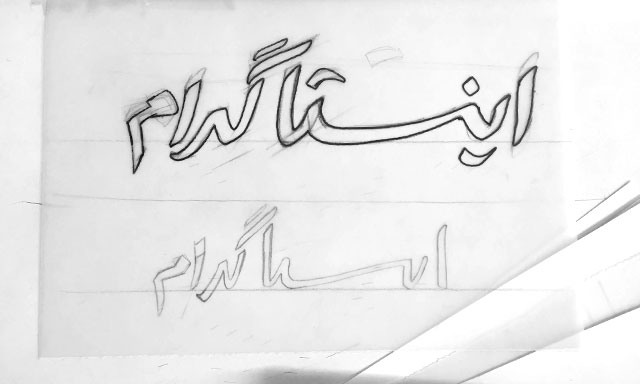 اینستاگرام
اینستاگرام